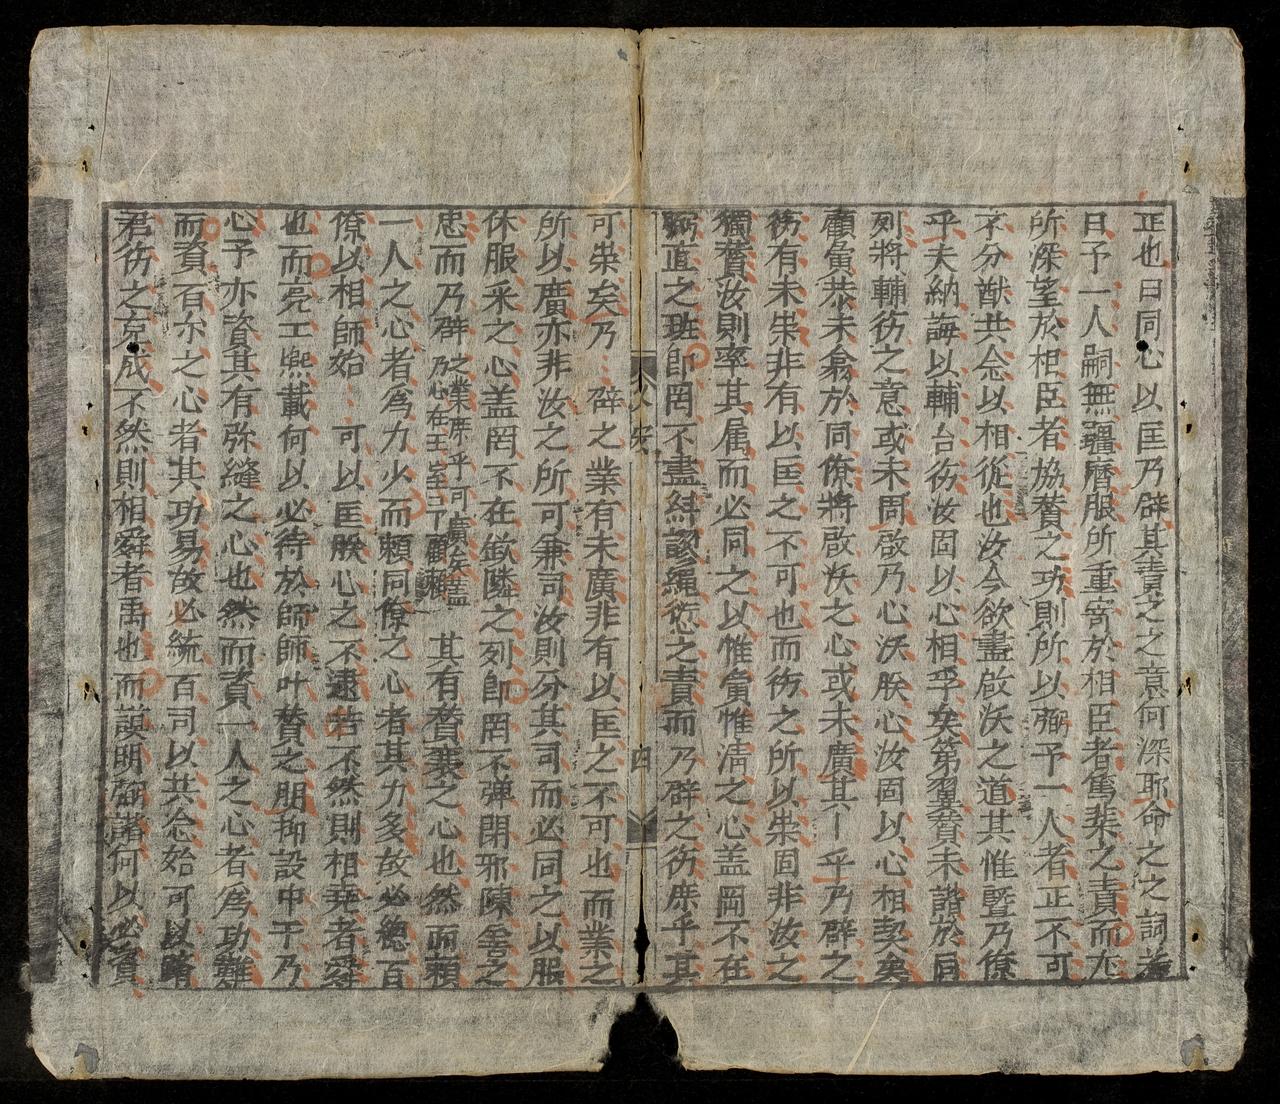 正也曰同心以匡乃辟其責之之意何深耶命之之詞若
曰予一人嗣無疆曆服所重寄於相臣者篤棐之責而尤
所深望於相臣者協賛之功則所以弼予一人者正不可
不分猷共念以相從也汝今欲盡啟沃之道其惟曁乃僚
乎夫納誨以輔台彷汝固以心相孚矣第翼賛未諧於同
列將輔彷之意或未周啟乃心沃朕心汝固以心相契矣
顧寅恭未翕於同僚將啟沃之心或未廣其一乎乃辟之
彷有未柴非有以匡之不可也而彷之所以柴固非汝之
獨賛汝則率其属而必同之以惟寅惟淸之心盖罔不在
弼直之班卽罔不盡紏謬繩愆之責而乃辟之彷庶乎其
可柴矣乃辟之業有未廣非有以匡之不可也而業之
所以廣亦非汝之所可兼司汝則分其司而必同之以服
休服采之心盖罔不在欽隣之列卽罔不弹閉邪陳善之
忠而乃辟之業庶乎可廣矣盖乃心在王室下其有賛襄之心也然而頼
一人之心者爲力少而頼同僚之心者其力多故必總百
僚以相師始可以匡朕心之不逮若不然則相堯者舜
也而亮工熈載何以必待於師師叶賛之朋抑設中于乃
心予亦資其有弥縫之心也然而資一人之心者爲功難
而資百尔之心者其功易故必統百司以共念始可以
君彷之克成不然則相舜者禹也而謨明弼諧何以必資
八
四